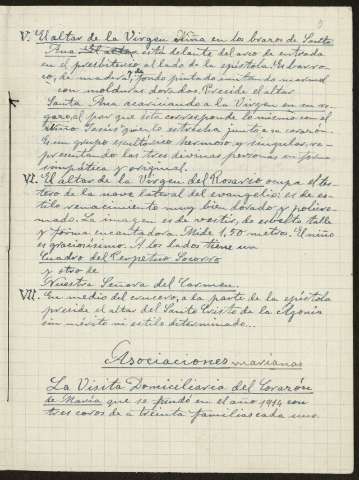 V. El altar de la Virgen Niña en los brazos de Santa
Ana El altar está delante del arco de entrada
en el presbiterio al lado de la epístola. Es barro-
co, de madera, y de fondo pintado imitando marmol
con molduras doradas. Preside el altar
Santa Ana acariciando a la Virgen en su re-
gazo, al par que ésta corresponde lo mismo con el
tierno Jesús que lo estrecha junto a su corazón.
Es un grupo escultórico hermoso y singular, re-
presentando las tres divinas personas en forma
simpática y original.
VI. El altar de la Virgen del Rosario ocupa el tes-
tero de la nave lateral del evangelio: es de es-
tilo renacimiento muy bien dorado y policro-
mado. La imagen es de vestir, de esbelto talle
y forma encantadora. Mide 1,50 metro. El niño
es graciosísimo. A los lados tiene un
Cuadro del Perpetuo Socorro
y otro de
Nuestra Señora del Carmen.
VII. En medio del crucero, a la parte de la epístola
preside el altar del Santo Cristo de la Agonía
sin mérito ni estilo determinado...
Asociaciones marianas
La Visita Domiciliaria del Corazón
de María que se fundó en el año 1914 con
tres coros de a treinta familias cada uno.